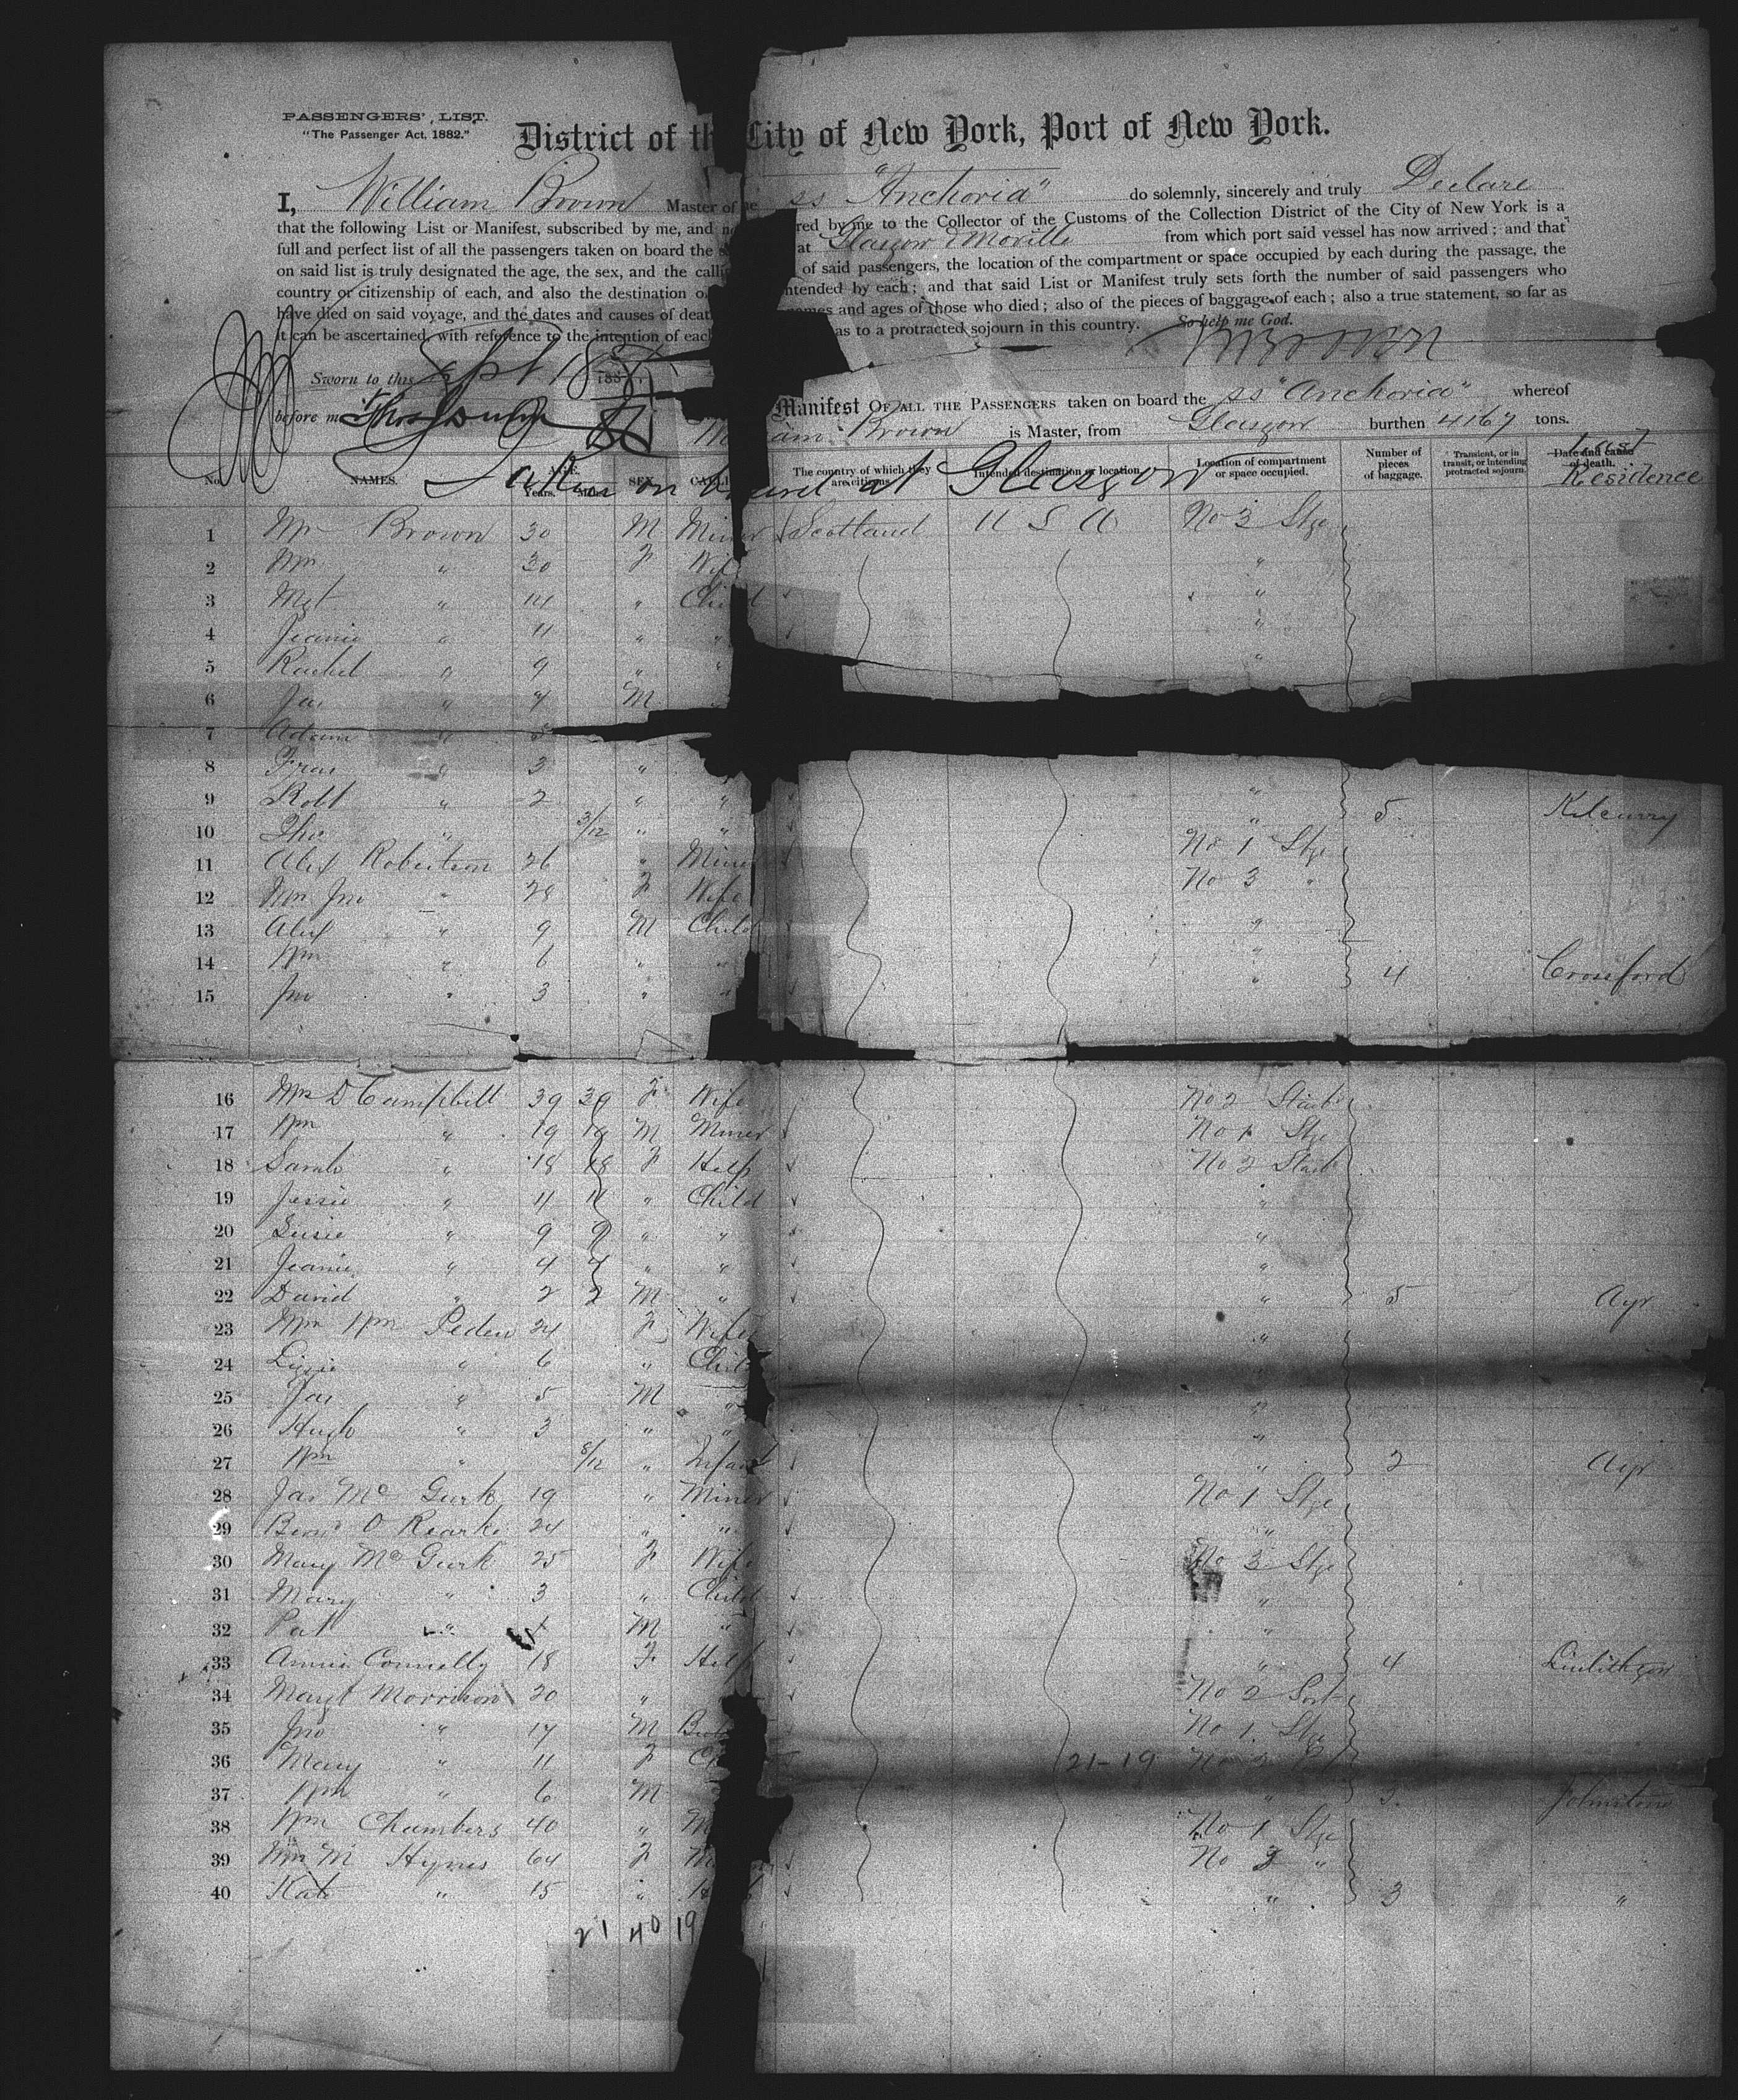 PASSENGERS' LIST.
"The Passenger Act, 1882."
District of th City of New York, Port of New York.
I, William Brown Master of he ss "Anchoria" do solemnly, sincerely and truly Declare
that the following List or Manifest, subscribed by me, and red by me to the Collector of the Customs of the Collection District of the City of New York is a
full and perfect list of all the passengers taken on board the at Glasgow & Moville from which port said vessel has now arrived; and that
on said list is truly designated the age, the sex, and the of said passengers, the location of the compartment or space occupied by each during the passage, the
country or citizenship of each, and also the destination ntended by each; and that said List or Manifest truly sets forth the number of said passengers who
have died on said voyage, and the dates and causes of and ages of those who died; also of the pieces of baggage of each; also a true statement, so far as
it can be ascertained, with reference to the intention of each as to a protracted sojourn in this country. So help me God.
Wm Brown
Sworn to this Sept 18 188
before m
Manifest OF ALL THE PASSENGERS taken on board the ss "Anchoria" whereof
William Brown is Master, from Glasgow burthen 4167 tons.
No. NAMES. AGE. Years. SEX. The country of which they are citizens. Intended destination or location. Location of compartment or space occupied. Number of pieces of baggage. Transient, or in transit, or intending protracted sojourn. Date and cause of death. Last Residence
Taken on board at Glasgow
1 Brown 30 M Miner Scotland U S A No 3 Stge
2 " 30 F Wife "
3 Mgt " 14 " Child "
4 Jeanie " 11 " " "
5 Rachel " 9 " " "
6 Jas " 7 M
7 Adam "
8 Fras " 3 "
9 Robt " 2 " " "
10 Tho " 3/12 " " " 5 Kilcurry
11 Alex Robertson 26 " Miner No 1 Stge
12 " 28 F Wife No 3 "
13 Alex " 9 M Child "
14 Wm " 6 " " "
15 Jno " 3 " " " 4 Crossford
16 Mrs D Campbell 39 39 F Wife No 2 Starb
17 Wm " 19 19 M Miner No 1 Stge
18 Sarah " 18 18 F Help No 2 Starb
19 Jessie " 11 11 " Child "
20 Susie " 9 9 " " "
21 Jeanie " 4 4 " " "
22 David " 2 2 M " " 5 Ayr
23 Mrs Wm Peden 24 F Wife "
24 Lizzie " 6 " Child "
25 Jas " 5 M " "
26 Hugh " 3 " " "
27 Wm " 8/12 " Infant " 2 Ayr
28 Jas Mc Gurk 19 " Miner No 1 Stge
29 O Rearke 24 " " "
30 Mary Mc Gurk 25 F Wife No 3 Stge
31 Mary " 3 " Child "
32 Pat " M " "
33 Annie Connelly 18 F Help " 4 Linlithgow
34 Margt Morrison 20 " No 2 Port
35 Jno " 17 M No 1 Stge
36 Mary " 11 F 21-19 No 2 Port
37 Wm " 6 M " 3 Johnstone
38 Wm Chambers 40 " No 1 Stge
39 Mrs M Hynes 64 F No 3 "
40 Kate " 15 " " 3 "
21 40 19